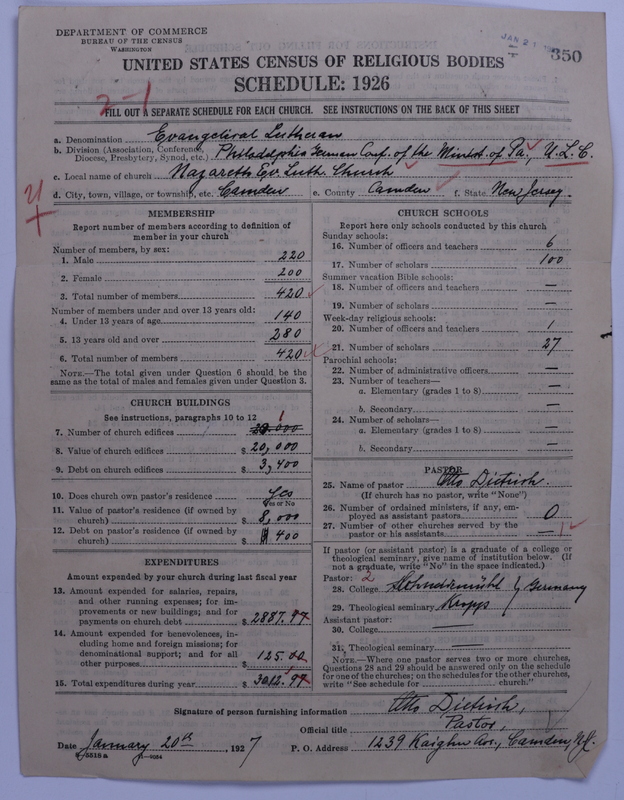 DEPARTMENT OF COMMERCE
BUREAU OF THE CENSUS
WASHINGTON
JAN 21
350
UNITED STATES CENSUS OF RELIGIOUS BODIES
SCHEDULE: 1926
2-1
FILL OUT A SEPARATE SCHEDULE FOR EACH CHURCH. SEE INSTRUCTIONS ON THE BACK OF THIS SHEET
a. Denomination Evangelical Lutheran
b. Division (Association, Conference, Diocese, Presbytery, Synod, etc.) Philadelphia German Conf. of the Minist. of Pa., U.L.C.
c. Local name of church Nazareth Ev. Luth. Church
d. City, town, village, or township, etc. Camden e. County Camden f. State New Jersey.
MEMBERSHIP
Report number of members according to definition of
member in your church
Number of members, by sex:
1. Male 220
2. Female 200
3. Total number of members 420
Number of members under and over 13 years old:
4. Under 13 years of age 140
5. 13 years old and over 280
6. Total number of members 420
NOTE.—The total given under Question 6 should be the
same as the total of males and females given under Question 3.
CHURCH BUILDINGS
See instructions, paragraphs 10 to 12
7. Number of church edifices 1
8. Value of church edifices $ 20,000
9. Debt on church edifices $ 3,400
10. Does church own pastor's residence Yes
Yes or No
11. Value of pastor's residence (if owned by
church) $ 8,000
12. Debt on pastor's residence (if owned by
church) $ 400
EXPENDITURES
Amount expended by your church during last fiscal year
13. Amount expended for salaries, repairs,
and other running expenses; for im-
provements or new buildings; and for
payments on church debt $ 2887.97
14. Amount expended for benevolences, in-
cluding home and foreign missions; for
denominational support; and for all
other purposes $ 125.00
15. Total expenditures during year $ 3012.97
CHURCH SCHOOLS
Report here only schools conducted by this church
Sunday schools:
16. Number of officers and teachers 6
17. Number of scholars 100
Summer vacation Bible schools:
18. Number of officers and teachers —
19. Number of scholars —
Week-day religious schools:
20. Number of officers and teachers 1
21. Number of scholars 27
Parochial schools:
22. Number of administrative officers —
23. Number of teachers—
a. Elementary (grades 1 to 8) —
b. Secondary —
24. Number of scholars—
a. Elementary (grades 1 to 8) —
b. Secondary —
PASTOR
25. Name of pastor Otto Dietrich.
(If church has no pastor, write "None")
26. Number of ordained ministers, if any, em-
ployed as assistant pastors 0
27. Number of other churches served by the
pastor or his assistants — 1
If pastor (or assistant pastor) is a graduate of a college or
theological seminary, give name of institution below. (If
not a graduate, write "No" in the space indicated.)
Pastor: 2
28. College Germany
29. Theological seminary Kropp
Assistant pastor:
30. College —
31. Theological seminary —
NOTE.—Where one pastor serves two or more churches,
Questions 28 and 29 should be answered only on the schedule
for one of the churches; on the schedules for the other churches,
write "See schedule for church."
Signature of person furnishing information Otto Dietrich,
Official title Pastor,
Date January 20th, 1927 P. O. Address 1239 Kaighn Ave., Camden, N.J.
8-5518 a